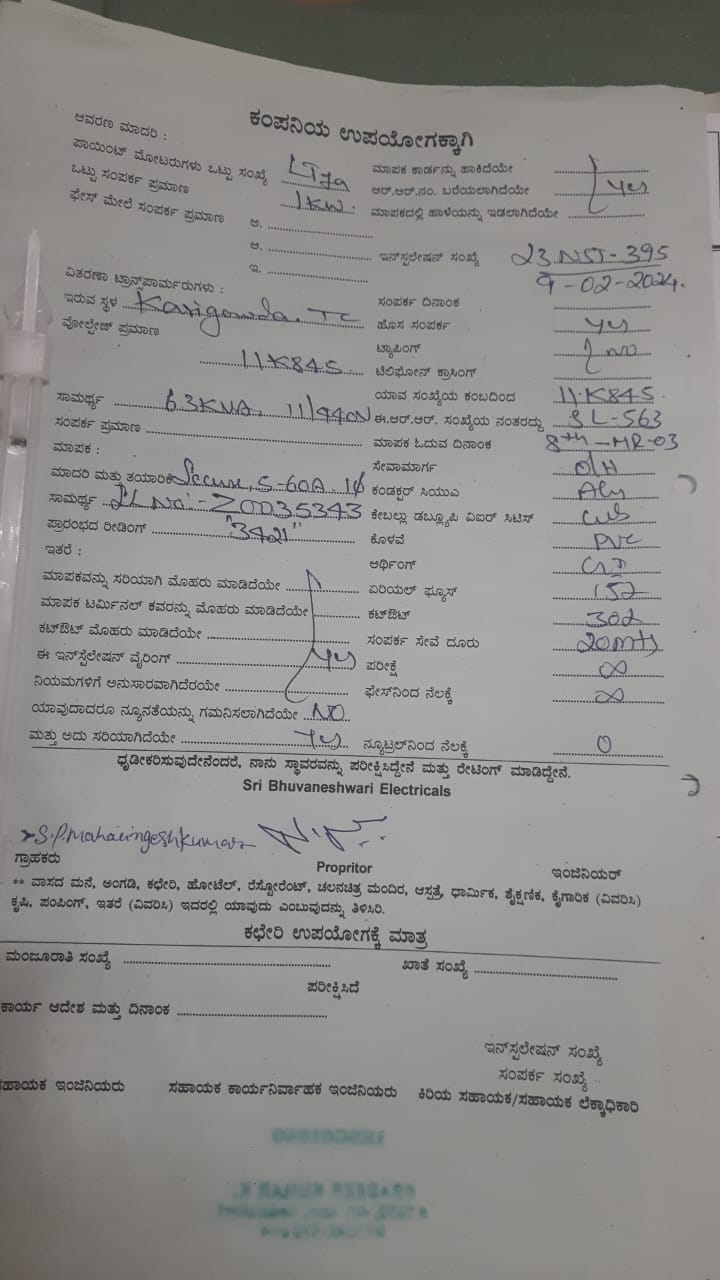 ಕಂಪನಿಯ ಉಪಯೋಗಕ್ಕಾಗಿ
ಆವರಣ ಮಾದರಿ :
ಪಾಯಿಂಟ್ ಮೋಟರುಗಳು ಒಟ್ಟು ಸಂಖ್ಯೆ LT7a ಮಾಪಕ ಕಾರ್ಡನ್ನು ಹಾಕಿದೆಯೇ
ಒಟ್ಟು ಸಂಪರ್ಕ ಪ್ರಮಾಣ 1KW. ಆರ್.ಆರ್.ನಂ. ಬರೆಯಲಾಗಿದೆಯೇ yes
ಫೇಸ್ ಮೇಲೆ ಸಂಪರ್ಕ ಪ್ರಮಾಣ ಅ. ಮಾಪಕದಲ್ಲಿ ಹಾಳೆಯನ್ನು ಇಡಲಾಗಿದೆಯೇ
ಆ. ಇನ್ಸ್ಪಲೇಷನ್ ಸಂಖ್ಯೆ 23NST-395
ಇ. 9-02-2024.
ವಿತರಣಾ ಟ್ರಾನ್ಸ್‌ಪಾರ್ಮರುಗಳು : ಸಂಪರ್ಕ ದಿನಾಂಕ
ಇರುವ ಸ್ಥಳ Karigowda. TC ಹೊಸ ಸಂಪರ್ಕ yes
ವೋಲ್ಟೇಜ್ ಪ್ರಮಾಣ ಟ್ಯಾಪಿಂಗ್ no
11K845 ಟೆಲಿಫೋನ್ ಕ್ರಾಸಿಂಗ್
ಯಾವ ಸಂಖ್ಯೆಯ ಕಂಬದಿಂದ 11.K845.
ಸಾಮರ್ಥ್ಯ 63KVA. ಈ.ಆರ್.ಆರ್. ಸಂಖ್ಯೆಯ ನಂತರದ್ದು SL-563
ಸಂಪರ್ಕ ಪ್ರಮಾಣ ಮಾಪಕ ಓದುವ ದಿನಾಂಕ 8th-MR-03
ಮಾಪಕ : ಸೇವಾಮಾರ್ಗ O/H
ಮಾದರಿ ಮತ್ತು ತಯಾರಿಕೆ Secure, 5-60A. 1ϕ ಕಂಡಕ್ಟರ್ ಸಿಯುಎ Aly
ಸಾಮರ್ಥ್ಯ SL NO:- Z0035343 ಕೇಬಲ್ಲು ಡಬ್ಲ್ಯೂಪಿ ವಿಐರ್ ಸಿಟಿಸ್
ಪ್ರಾರಂಭದ ರೀಡಿಂಗ್ "3421" ಕೊಳವೆ PVC
ಇತರೆ : ಆರ್ಥಿಂಗ್
ಮಾಪಕವನ್ನು ಸರಿಯಾಗಿ ಮೊಹರು ಮಾಡಿದೆಯೇ ಏರಿಯಲ್ ಫ್ಯೂಸ್
ಮಾಪಕ ಟರ್ಮಿನಲ್ ಕವರನ್ನು ಮೊಹರು ಮಾಡಿದೆಯೇ ಕಟ್‌ಔಟ್
ಕಟ್‌ಔಟ್ ಮೊಹರು ಮಾಡಿದೆಯೇ ಸಂಪರ್ಕ ಸೇವೆ ದೂರು 20mts
ಈ ಇನ್‌ಸ್ಪೆಲೇಷನ್ ವೈರಿಂಗ್ Yes ಪರೀಕ್ಷೆ ∞
ನಿಯಮಗಳಿಗೆ ಅನುಸಾರವಾಗಿದೆರಯೇ ಫೇಸ್‌ನಿಂದ ನೆಲಕ್ಕೆ ∞
ಯಾವುದಾದರೂ ನ್ಯೂನತೆಯನ್ನು ಗಮನಿಸಲಾಗಿದೆಯೇ NO
ಮತ್ತು ಅದು ಸರಿಯಾಗಿದೆಯೇ Yes ನ್ಯೂಟ್ರಲ್‌ನಿಂದ ನೆಲಕ್ಕೆ 0
ಧೃಡೀಕರಿಸುವುದೇನೆಂದರೆ, ನಾನು ಸ್ಥಾವರವನ್ನು ಪರೀಕ್ಷಿಸಿದ್ದೇನೆ ಮತ್ತು ರೇಟಿಂಗ್ ಮಾಡಿದ್ದೇನೆ.
Sri Bhuvaneshwari Electricals
S.P.Mahalingeshkumar
ಗ್ರಾಹಕರು Propritor ಇಂಜಿನಿಯರ್
** ವಾಸದ ಮನೆ, ಅಂಗಡಿ, ಕಛೇರಿ, ಹೋಟೆಲ್, ರೆಸ್ಟೋರೆಂಟ್, ಚಲನಚಿತ್ರ ಮಂದಿರ, ಆಸ್ಪತ್ರೆ, ಧಾರ್ಮಿಕ, ಶೈಕ್ಷಣಿಕ, ಕೈಗಾರಿಕ (ವಿವರಿಸಿ)
ಕೃಷಿ, ಪಂಪಿಂಗ್, ಇತರೆ (ವಿವರಿಸಿ) ಇದರಲ್ಲಿ ಯಾವುದು ಎಂಬುವುದನ್ನು ತಿಳಿಸಿರಿ.
ಕಛೇರಿ ಉಪಯೋಗಕ್ಕೆ ಮಾತ್ರ
ಮಂಜೂರಾತಿ ಸಂಖ್ಯೆ ಖಾತೆ ಸಂಖ್ಯೆ
ಪರೀಕ್ಷಿಸಿದೆ
ಕಾರ್ಯ ಆದೇಶ ಮತ್ತು ದಿನಾಂಕ
ಇನ್‌ಸ್ಪಲೇಷನ್ ಸಂಖ್ಯೆ
ಸಂಪರ್ಕ ಸಂಖ್ಯೆ
ಸಹಾಯಕ ಇಂಜಿನಿಯರು ಸಹಾಯಕ ಕಾರ್ಯನಿರ್ವಾಹಕ ಇಂಜಿನಿಯರು ಕಿರಿಯ ಸಹಾಯಕ/ಸಹಾಯಕ ಲೆಕ್ಕಾಧಿಕಾರಿ